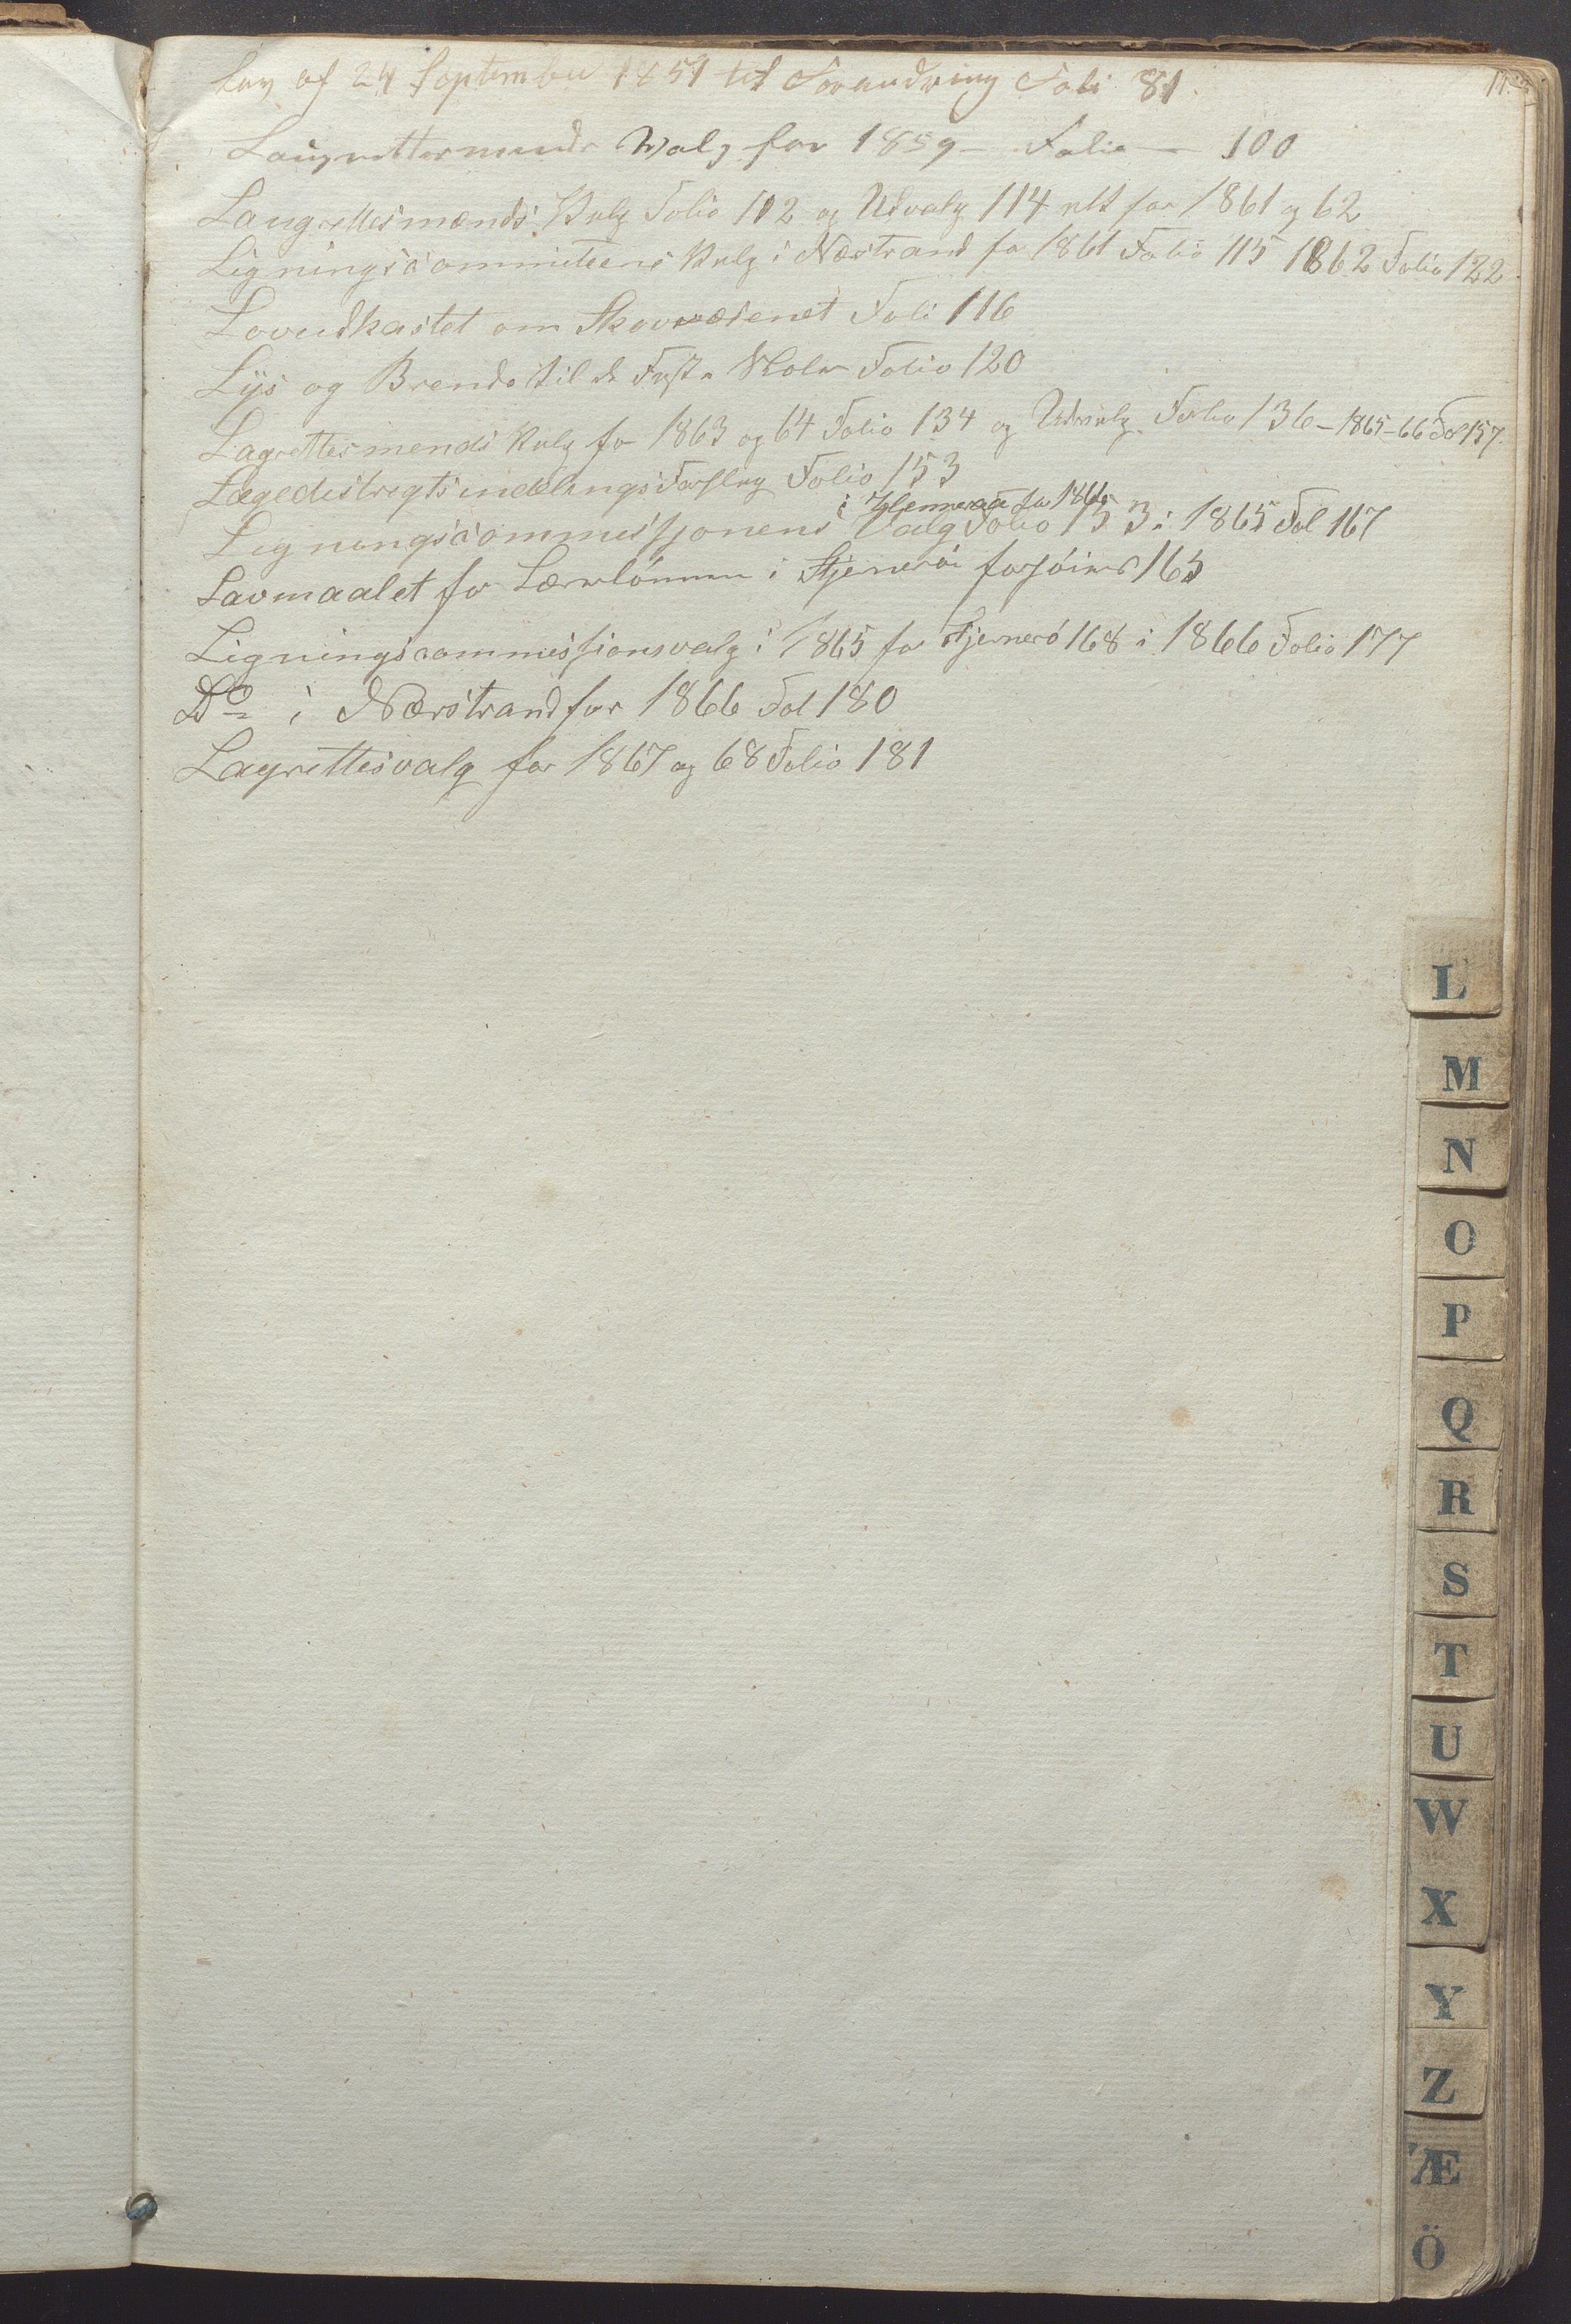 Lov af 24 September 1851 til Forandring Foli 81.
11.
Laugrettesmænds Walg for 1859 - Folio - 100
Laugrettesmænds Valg Folio 112 og Udvalg 114 alt for 1861 og 62
Ligningscommiteens Valg i Nærstrand for 1861 Folio 115 1862 Folio 122
Lovudkastet om Skovvæsenet Foli 116
Lys og Brende til de Faste Skoler Folio 120
Lagrettesmends Valg for 1863 og 64 Folio 134 og Udvalg Folio 136 - 1865-66 Fol 157.
Lægedistrigtsindelings Forslag Folio 153
i for 1866
Ligningscommissjonens Valg Folio 153 i 1865 Fol 167
Lavmaalet for Lærerlönnen i Stjerneröi 165
Ligningscommissionsvalg i 1865 for Stjernerö 168 i 1866 Folio 177
Do i Nærstrand for 1866 Fol 180
Lagrettesvalg for 1867 og 68 Folio 181
L
M
N
O
P
Q
R
S
T
U
W
X
Y
Z
Æ
Ö